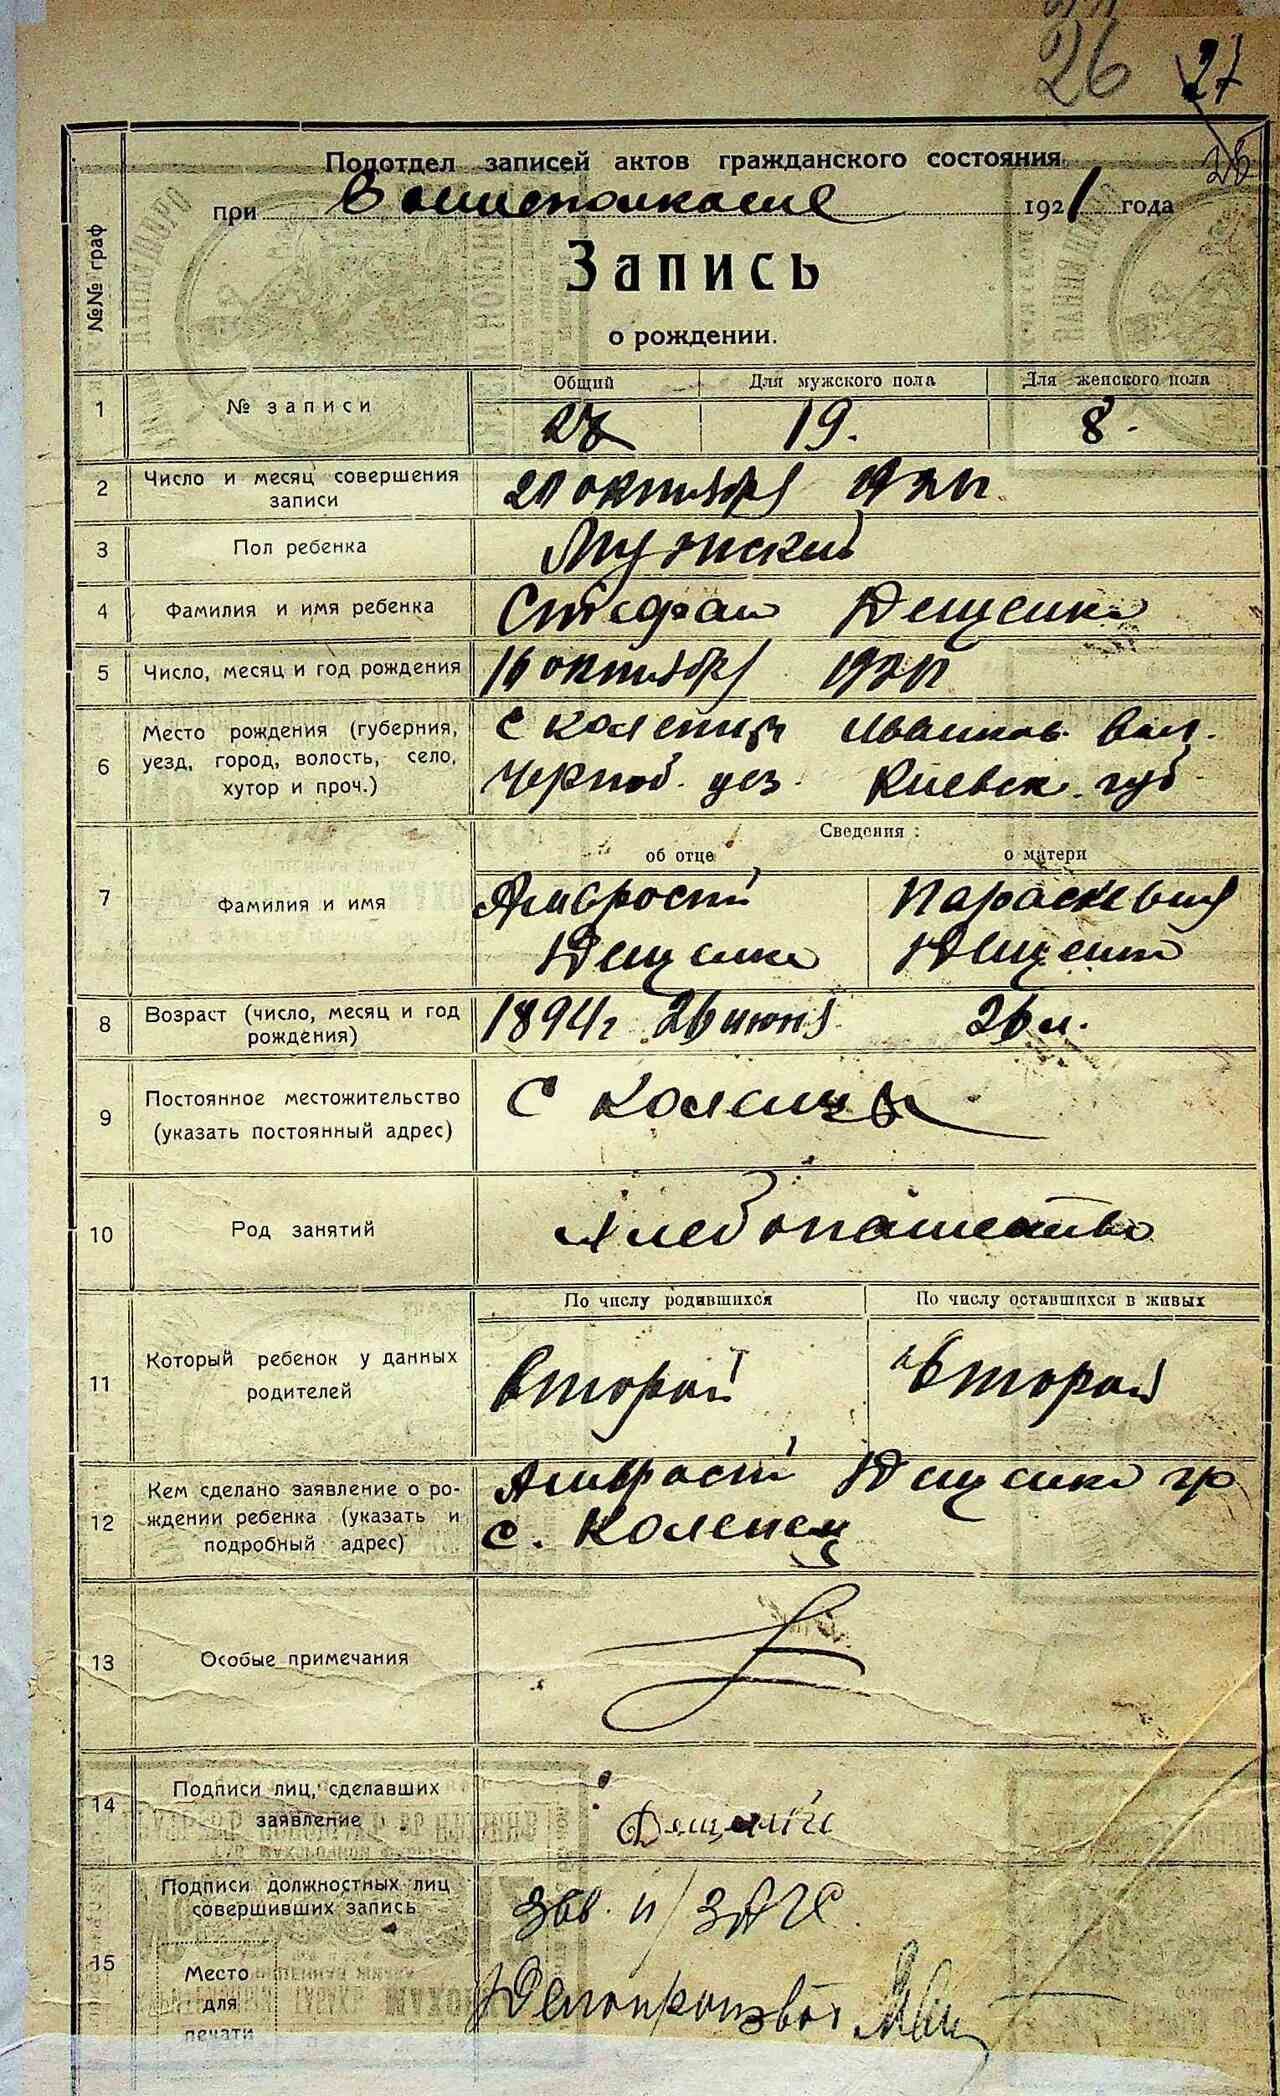 26
27
28
Подотдел записей актов гражданского состояния
при Волисполкоме 1921 года
Запись
о рождении.
№№ граф
Общий Для мужского пола Для женского пола
1 № записи 27 19. 8.
2 Число и месяц совершения
записи
21 октября 1921г.
3 Пол ребенка Мужский
4 Фамилия и имя ребенка Стефан Дещенко
5 Число, месяц и год рождения 16 октября 1921г
6 Место рождения (губерния,
уезд, город, волость, село,
хутор и проч.)
с Коленцы Иванков. вол.
Черноб. уез. Киевск. губ
Сведения:
об отце о матери
7 Фамилия и имя
Амвросий Параскевия
Дещенко Дещенко
8 Возраст (число, месяц и год
рождения)
1894г 26 июня 26 л.
9 Постоянное местожительство
(указать постоянный адрес)
с Коленцы
10 Род занятий Хлебопашество
По числу родившихся По числу оставшихся в живых
11 Который ребенок у данных
родителей
Второй Второй
12 Кем сделано заявление о ро-
ждении ребенка (указать и
подробный адрес)
Амвросий Дещенко гр
с. Коленец
13 Особые примечания
14 Подписи лиц, сделавших
заявление
Дещенко
15 Подписи должностных лиц
совершивших запись
Зав. п/ ЗАГС
Место
для
печати
Делопроизвод